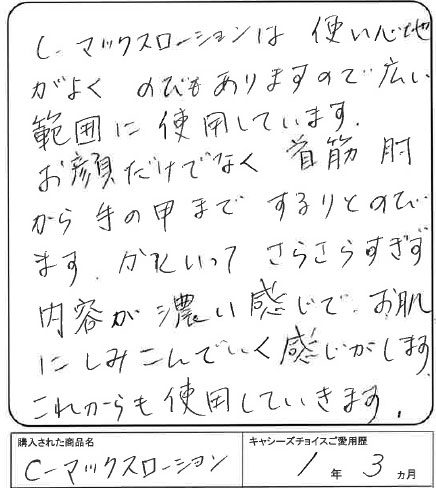 C-マックスローションは 使い心地
がよく のびもありますので 広い
範囲に 使用しています.
お顔だけでなく 首筋 肘
から 手の甲まで するりとのび
ます. かといって さらさらすぎず
内容が 濃い 感じで お肌
に しみこんでいく 感じがします
これからも使用していきます.
購入された商品名
C-マックスローション
キャシーズチョイスご愛用歴
1年3ヵ月